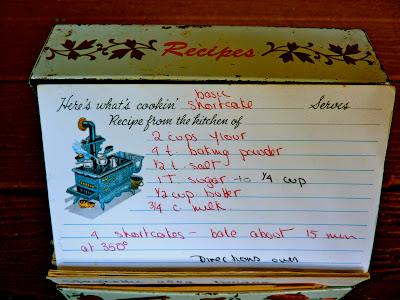 Recipes
basic
Here's what's cookin' shortcake Serves
Recipe from the kitchen of
2 cups flour
4 t. baking powder
1/2 t. salt
1 T sugar - to 1/4 cup
1/2 cup butter
3/4 c. milk.
4 shortcakes - bake about 15 min
at 350°
Directions over